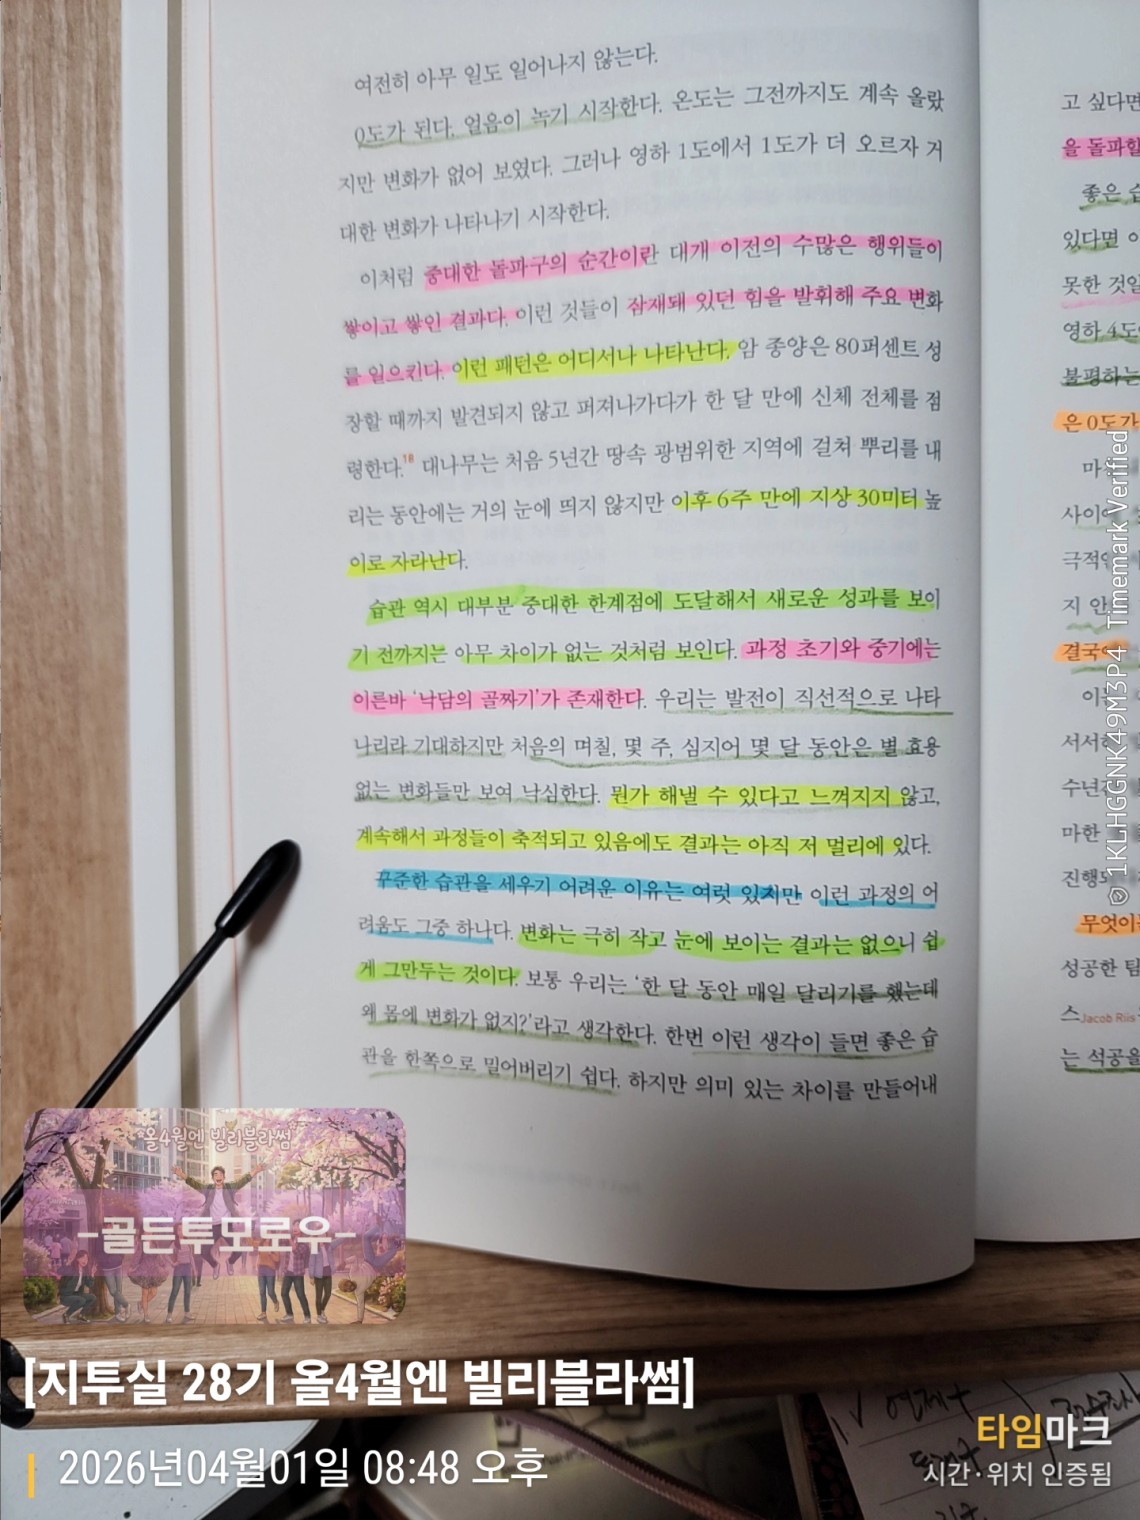 여전히 아무 일도 일어나지 않는다.
0도가 된다. 얼음이 녹기 시작한다. 온도는 그전까지도 계속 올랐
지만 변화가 없어 보였다. 그러나 영하 1도에서 1도가 더 오르자 거
대한 변화가 나타나기 시작한다.
이처럼 중대한 돌파구의 순간이란 대개 이전의 수많은 행위들이
쌓이고 쌓인 결과다. 이런 것들이 잠재돼 있던 힘을 발휘해 주요 변화
를 일으킨다. 이런 패턴은 어디서나 나타난다. 암 종양은 80퍼센트 성
장할 때까지 발견되지 않고 퍼져나가다가 한 달 만에 신체 전체를 점
령한다.18 대나무는 처음 5년간 땅속 광범위한 지역에 걸쳐 뿌리를 내
리는 동안에는 거의 눈에 띄지 않지만 이후 6주 만에 지상 30미터 높
이로 자라난다.
습관 역시 대부분 중대한 한계점에 도달해서 새로운 성과를 보이
기 전까지는 아무 차이가 없는 것처럼 보인다. 과정 초기와 중기에는
이른바 '낙담의 골짜기'가 존재한다. 우리는 발전이 직선적으로 나타
나리라 기대하지만 처음의 며칠, 몇 주, 심지어 몇 달 동안은 별 효용
없는 변화들만 보여 낙심한다. 뭔가 해낼 수 있다고 느껴지지 않고,
계속해서 과정들이 축적되고 있음에도 결과는 아직 저 멀리에 있다.
꾸준한 습관을 세우기 어려운 이유는 여럿 있지만 이런 과정의 어
려움도 그중 하나다. 변화는 극히 작고 눈에 보이는 결과는 없으니 쉽
게 그만두는 것이다. 보통 우리는 '한 달 동안 매일 달리기를 했는데
왜 몸에 변화가 없지?'라고 생각한다. 한번 이런 생각이 들면 좋은 습
관을 한쪽으로 밀어버리기 쉽다. 하지만 의미 있는 차이를 만들어내
고 싶다면
을 돌파할
좋은 습
있다면 이
못한 것일
영하 4도
불평하는
은 0도가
사이
극적인
지 안
결국
서서히
수년간
마한
진행
무엇이
성공한 팀
스Jacob Riis
는 석공을
올4월엔 빌리블라썸
-골든투모로우-
[지투실 28기 올4월엔 빌리블라썸]
2026년04월01일 08:48 오후
타임마크
시간·위치 인증됨
1KLHGGNK49M3P4 Timemark Verified